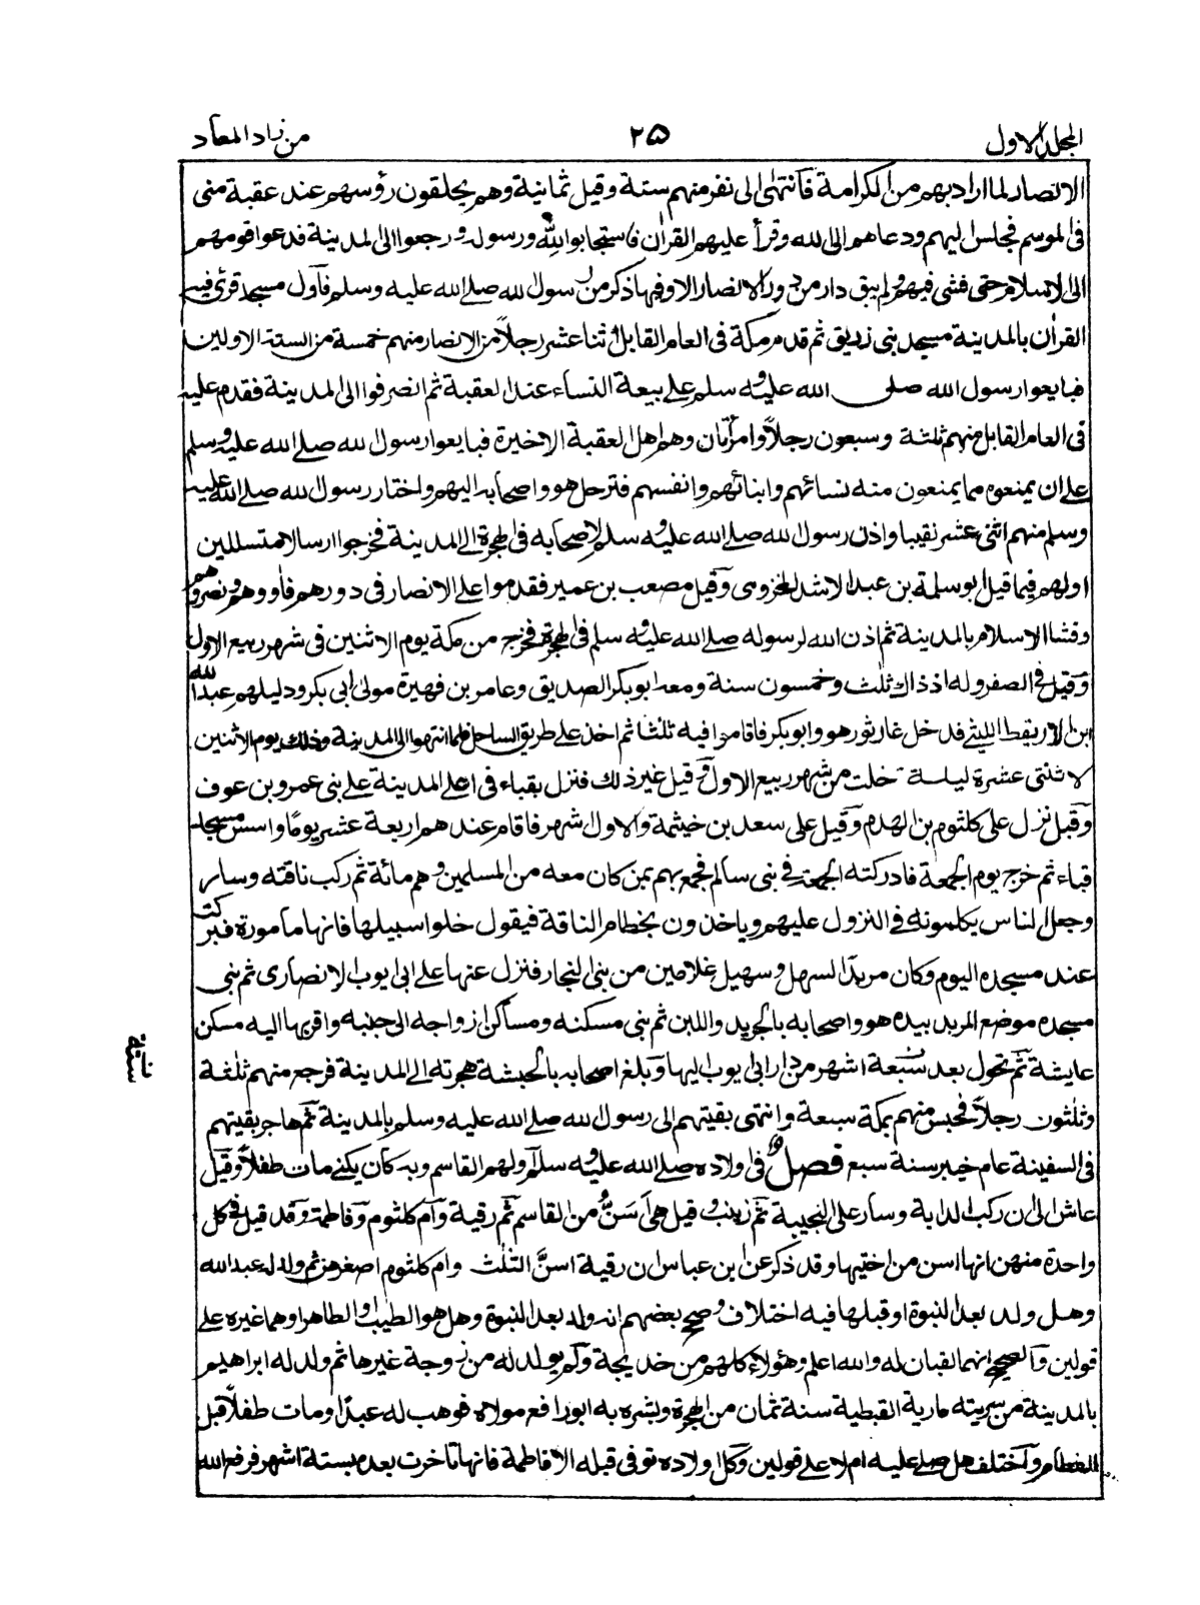 المجلد الاول
٢۵
من زاد المعاد
الانصار لما اراد بهم من الكرامة فانتهى الى نفر منهم ستة وقيل ثمانية وهم يحلقون رؤسهم عند عقبة منى
فى الموسم فجلس اليهم ودعاهم الى الله وقرأ عليهم القرآن فاستجابوا لله ورسوله ورجعوا الى المدينة فدعوا قومهم
الى الاسلام حتى فشى فيهم ولم يبق دار من دور الانصار الا وفيها ذكر من رسول الله صلے الله عليه وسلم فاول مسجد قرئ فيه
القرآن بالمدينة مسجد بنى زريق ثم قدم مكة فى العام القابل اثنا عشر رجلاً من الانصار منهم خمسة من الستة الاولين
فبايعوا رسول الله صلى الله عليه وسلم على بيعة النساء عند العقبة ثم انصرفوا الى المدينة فقدم عليه
فى العام القابل منهم ثلثة وسبعون رجلاً وامرأتان وهم اهل العقبة الاخيرة فبايعوا رسول الله صلے الله عليه وسلم
على ان يمنعوه مما يمنعون منه نسائهم وابنائهم وانفسهم فترحل هو واصحابه اليهم واختار رسول الله صلے الله عليه
وسلم منهم اثنى عشر نقيبا واذن رسول الله صلے الله عليه وسلم لاصحابه فى الهجرة الى المدينة فخرجوا ارسالا متسللين
اولهم فيما قيل ابو سلمة بن عبد الاشد المخزومى وقيل مصعب بن عمير فقدموا على الانصار فى دورهم فآووهم ونصروهم
وفشا الاسلام بالمدينة ثم اذن الله لرسوله صلے الله عليه وسلم فى الهجرة فخرج من مكة يوم الاثنين فى شهر ربيع الاول
وقيل فى الصفر وله اذ ذاك ثلث وخمسون سنة ومعه ابو بكر الصديق وعامر بن فهيرة مولى ابى بكر ودليلهم عبد الله
ابن الاريقط الليثى فدخل غار ثور هو وابو بكر فاقاما فيه ثلثا ثم اخذ على طريق الساحل فلما انتهوا الى المدينة وذلك يوم الاثنين
لاثنتى عشرة ليلة خلت من شهر ربيع الاول وقيل غير ذلك فنزل بقباء فى اعلى المدينة على بنى عمرو بن عوف
وقيل نزل على كلثوم بن الهدم وقيل على سعد بن خيثمة والاول اشهر فاقام عندهم اربعة عشر يوماً واسس مسجد
قباء ثم خرج يوم الجمعة فادركته الجمعة فى بنى سالم فجمع بهم بمن كان معه من المسلمين وهم مائة ثم ركب ناقته وسار
وجعل الناس يكلمونه فى النزول عليهم وياخذون بخطام الناقة فيقول خلوا سبيلها فانها مامورة فبركت
عند مسجده اليوم وكان مربدًا لسهل وسهيل غلامين من بنى النجار فنزل عنها على ابى ايوب الانصارى ثم بنى
مسجده موضع المربد بيده هو واصحابه بالجريد واللبن ثم بنى مسكنه ومساكن ازواجه الى جنبه واقربها اليه مسكن
عايشة ثم تحول بعد سبعة اشهر من دار ابى ايوب اليها وبلغ اصحابه بالحبشة هجرته الى المدينة فرجع منهم ثلثة
وثلثون رجلاً فحبس منهم بمكة سبعة وانتهى بقيتهم الى رسول الله صلے الله عليه وسلم بالمدينة ثم هاجر بقيتهم
فى السفينة عام خيبر سنة سبع فصل فى اولاده صلے الله عليه وسلم اولهم القاسم وبه كان يكنى مات طفلاً وقيل
عاش الى ان ركب الدابة وسار على النجيبة ثم زينب وقيل هى اسن من القاسم ثم رقية وام كلثوم وفاطمة وقد قيل فى كل
واحدة منهن انها اسن من اختيها وقد ذكر عن ابن عباس ان رقية اسنّ الثلث وام كلثوم اصغرهن ثم ولد له عبد الله
وهل ولد بعد النبوة او قبلها فيه اختلاف وصحح بعضهم انه ولد بعد النبوة وهل هو الطيب والطاهر او هما غيره على
قولين والصحيح انهما لقبان له والله اعلم وهؤلاء كلهم من خديجة ولم يولد له من زوجة غيرها ثم ولد له ابراهيم
بالمدينة من سريته مارية القبطية سنة ثمان من الهجرة وبشره به ابو رافع مولاه فوهب له عبدًا ومات طفلاً قبل
الفطام واختلف هل صلے عليه ام لا على قولين وكل اولاده توفى قبله الا فاطمة فانها تاخرت بعده بستة اشهر فرفع الله